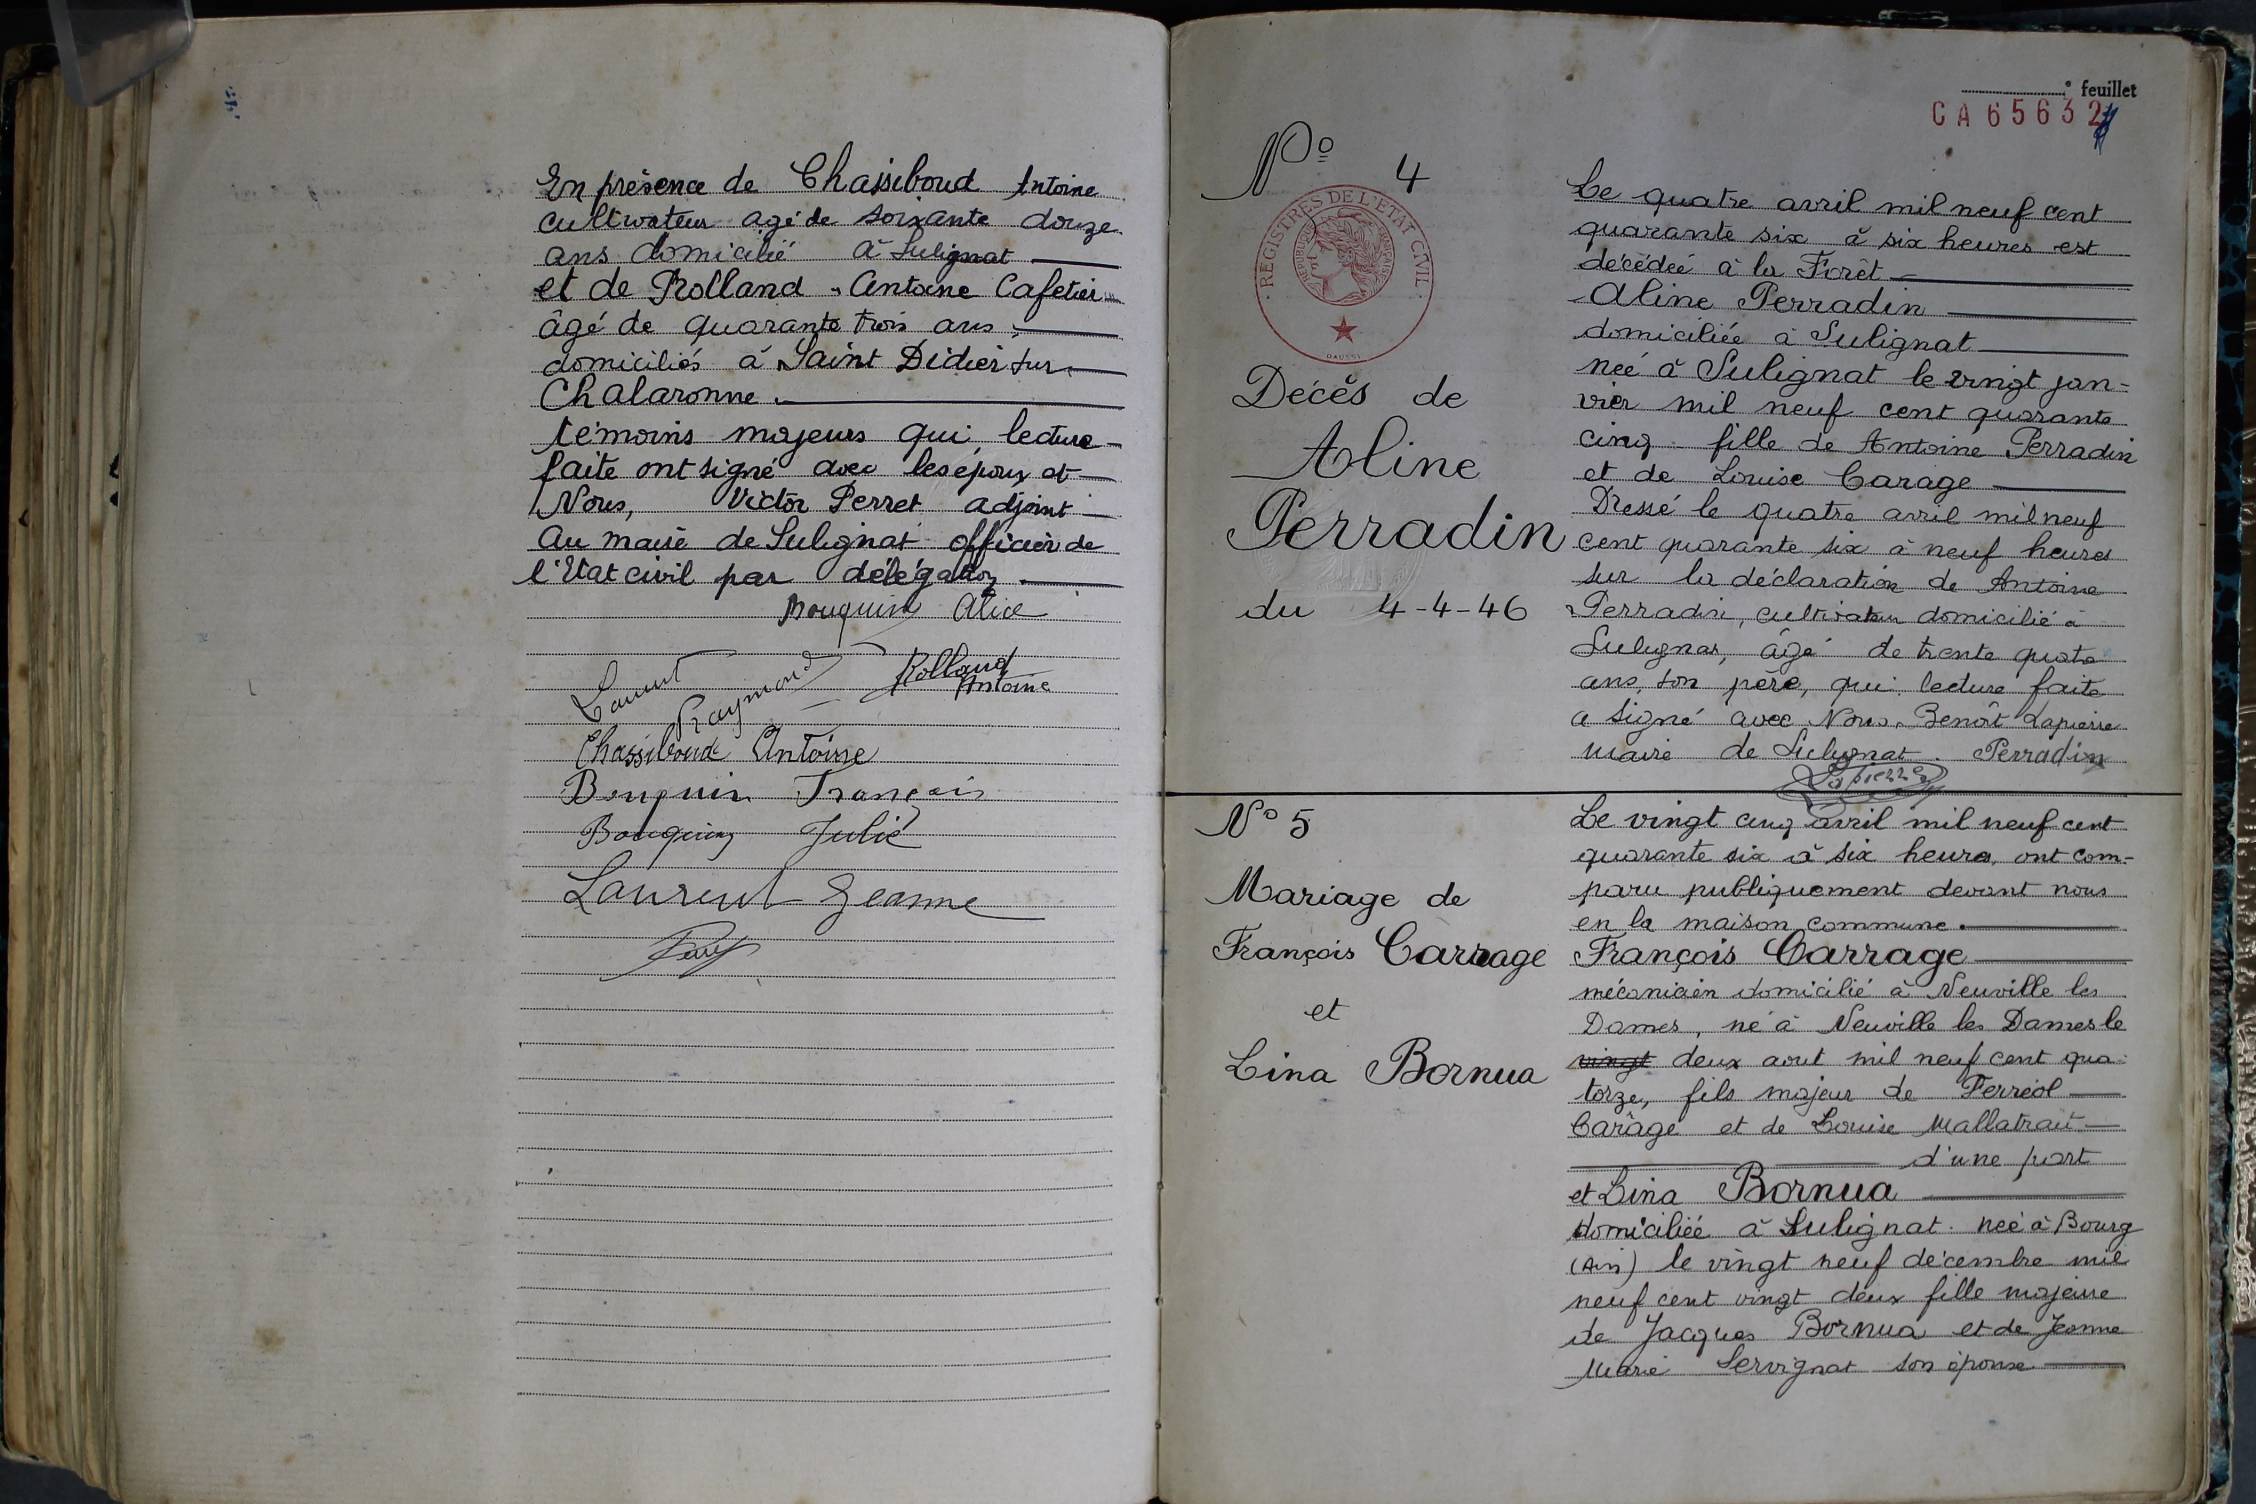 En présence de Chassiboud Antoine
cultivateur agé de soixante douze
ans domicilié à Sulignat
et de Rolland Antoine Cafetier
âgé de quarante trois ans,
domiciliés à Saint Didier sur
Chalaronne.
témoins majeurs qui lecture
faite ont signé avec les époux et
Nous, Victor Perret adjoint
au maire de Sulignat officier de
l'Etat civil par délégation.
Bouquin Alice
Rolland
Antoine
Laurent
Raymond
Chassiboud Antoine
Bouquin François
Bouquin Julie
Laurent Jeanne
° feuillet
CA65632
N° 4
REGISTRES DE L'ETAT CIVIL
Décès de
Aline
Perradin
du 4-4-46
Le quatre avril mil neuf cent
quarante six à six heures est
décédée à la Forêt
Aline Perradin
domiciliée à Sulignat
née à Sulignat le vingt jan-
vier mil neuf cent quarante
cinq fille de Antoine Perradin
et de Louise Carage
Dressé le quatre avril mil neuf
cent quarante six à neuf heures
sur la déclaration de Antoine
Perradin, cultivateur domicilié à
Sulignat, âgé de trente quatre
ans, son père, qui, lecture faite
a signé avec Nous, Benoît Lapierre
maire de Sulignat. Perradin
Lapierre
N° 5
Mariage de
François Carrage
et
Lina Bornua
Le vingt cinq avril mil neuf cent
quarante six à six heures, ont com-
paru publiquement devant nous
en la maison commune.
François Carrage
mécanicien domicilié à Neuville les
Dames, né à Neuville les Dames le
vingt deux aout mil neuf cent qua-
torze, fils majeur de Ferréol
Carage et de Louise Mallatrait
d'une part
et Lina Bornua
domiciliée à Sulignat. née à Bourg
(Ain) le vingt neuf décembre mil
neuf cent vingt deux fille majeure
de Jacques Bornua et de Jeanne
Marie Servignat son épouse